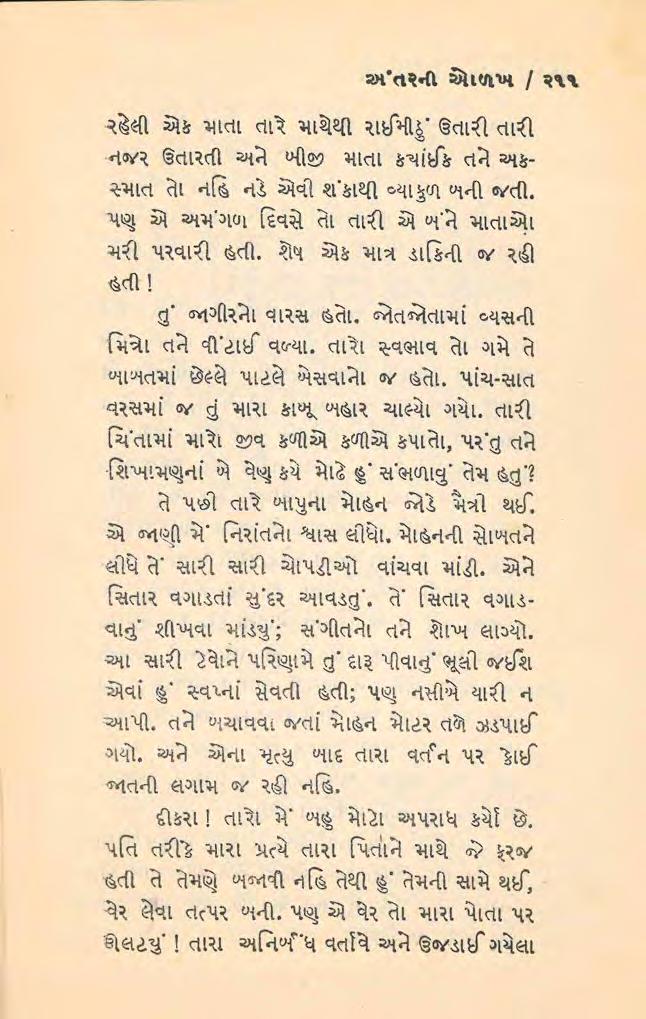 અંતરની ઓળખ / ૨૧૧
રહેલી એક માતા તારે માથેથી રાઈમીઠું ઉતારી તારી
નજર ઉતારતી અને બીજી માતા કયાંઈક તને અક-
સ્માત તો નહિ નડે એવી શંકાથી વ્યાકુળ બની જતી.
પણ એ અમંગળ દિવસે તો તારી એ બંને માતાઓ
મરી પરવારી હતી. શેષ એક માત્ર ડાકિની જ રહી
હતી !
તું જાગીરનો વારસ હતો. જોતજોતામાં વ્યસની
મિત્રો તને વીંટાઈ વળ્યા. તારો સ્વભાવ તો ગમે તે
બાબતમાં છેલ્લે પાટલે બેસવાનો જ હતો. પાંચ-સાત
વરસમાં જ તું મારા કાબૂ બહાર ચાલ્યો ગયો. તારી
ચિંતામાં મારો જીવ કળીએ કળીએ કપાતો, પરંતુ તને
શિખામણનાં બે વેણ કયે મોઢે હું સંભળાવું તેમ હતું?
તે પછી તારે બાપુના મોહન જોડે મૈત્રી થઈ.
એ જાણી મેં નિરાંતનો શ્વાસ લીધો. મોહનની સોબતને
લીધે તેં સારી સારી ચોપડીઓ વાંચવા માંડી. એને
સિતાર વગાડતાં સુંદર આવડતું. તેં સિતાર વગાડ-
વાનું શીખવા માંડયું; સંગીતનો તને શોખ લાગ્યો.
આ સારી ટેવોને પરિણામે તું દારૂ પીવાનું ભૂલી જઈશ
એવાં હું સ્વપ્નાં સેવતી હતી; પણ નસીબે યારી ન
આપી. તને બચાવવા જતાં મોહન મોટર તળે ઝડપાઈ
ગયો. અને એના મૃત્યુ બાદ તારા વર્તન પર કોઈ
જાતની લગામ જ રહી નહિ.
દીકરા ! તારો મેં બહુ મોટો અપરાધ કર્યો છે.
પતિ તરીકે મારા પ્રત્યે તારા પિતાને માથે જે ફરજ
હતી તે તેમણે બજાવી નહિ તેથી હું તેમની સામે થઈ,
વેર લેવા તત્પર બની. પણ એ વેર તો મારા પોતા પર
ઊલટયું ! તારા અનિર્બંધ વર્તાવે અને ઉજડાઈ ગયેલા